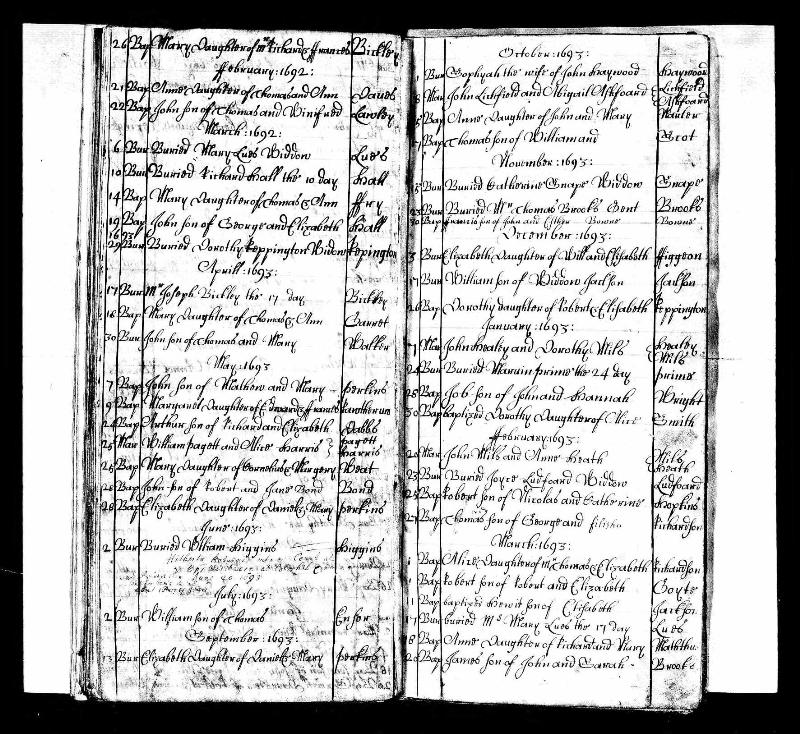 26 Bap Mary Daughter of Mr Richard & Frances Bickley
ffebruary: 1692:
21 Bap Anne Daughter of Thomas and Ann Davies
22 Bap John son of Thomas and Winifred Lawley
March: 1692:
6 Bur Buried Mary Lues Widdow Lues
10 Bur Buried Richard Hall the 10 day Hall
14 Bap Mary Daughter of Thomas & Ann ffry
19 Bap John son of George and Elizabeth Hall
1693
29 Bur Buried Dorothy Keppington Widow Kepington
Aprill: 1693:
17 Bur Mr Joseph Bickley the 17 day Bickley
18 Bap Mary Daughter of Thomas & Ann Garret
30 Bur John son of Thomas and Mary Walker
May: 1693
7 Bap John son of Mathew and Mary Perkins
9 Bap Margaret Daughter of Edward & Frances
24 Bap Arthur son of Richard and Elizabeth Dabbs
25 Mar William Pagett and Alice Harris Pagett Harris
25 Bap Mary Daughter of Cornelius & Margery Weat
28 Bap John son of Robert and Jane Bond Bond
28 Bap Elizabeth Daughter of Daniel & Mary Perkins
June: 1693:
2 Bur Buried William Higgins Higgins
July: 1693:
2 Bur William son of Thomas Ensor
September: 1693:
13 Bur Elizabeth Daughter of Daniel & Mary Perkins
October: 1693:
1 Bur Sophyah the wife of John Haywood Haywood
Mar John Lichfield and Abigail Ashfoard Lichfield Ashfoard
Bap Anne Daughter of John and Mary
Bap Thomas son of William and Grot
November: 1693:
Bur Buried Catherine Snape Widdow Snape
23 Bur Buried Mr Thomas Brooks Gent Brooks
30 Bap Francis son of John and Esther Bowne Bowne
December: 1693:
3 Bur Elizabeth Daughter of Will and Elizabeth ffidgeon
17 Bur William son of Widdow Jackson Jackson
26 Bap Dorothy daughter of Robert & Elizabeth Keppington
January: 1693:
Mar John Heatey and Dorothy Mils Heatey Mils
24 Bur Buried Marain Prime the 24 day Prime
28 Bap Job son of John and Hannah Wright
30 Bap baptized Dorothy Daughter of Alice Smith
ffebruary: 1693:
20 Mar John Mils and Anne Heath Mils Heath
23 Bur Buried Joyce Ludfoard Widdow Ludfoard
25 Bap Robert son of Nicolas and Catherine Hopkins
27 Bap Thomas son of George and Richardson
March: 1693:
1 Bap Alice Daughter of Mr Thomas & Elizabeth Richardson
Bap Robert son of Robert and Elizabeth
11 Bap baptized Hewit son of Elizabeth Jackson
17 Bur buried Ms Mary Lues the 17 day Lues
18 Bap Anne Daughter of Richard and Mary
20 Bap James son of John and Sarah Brooke